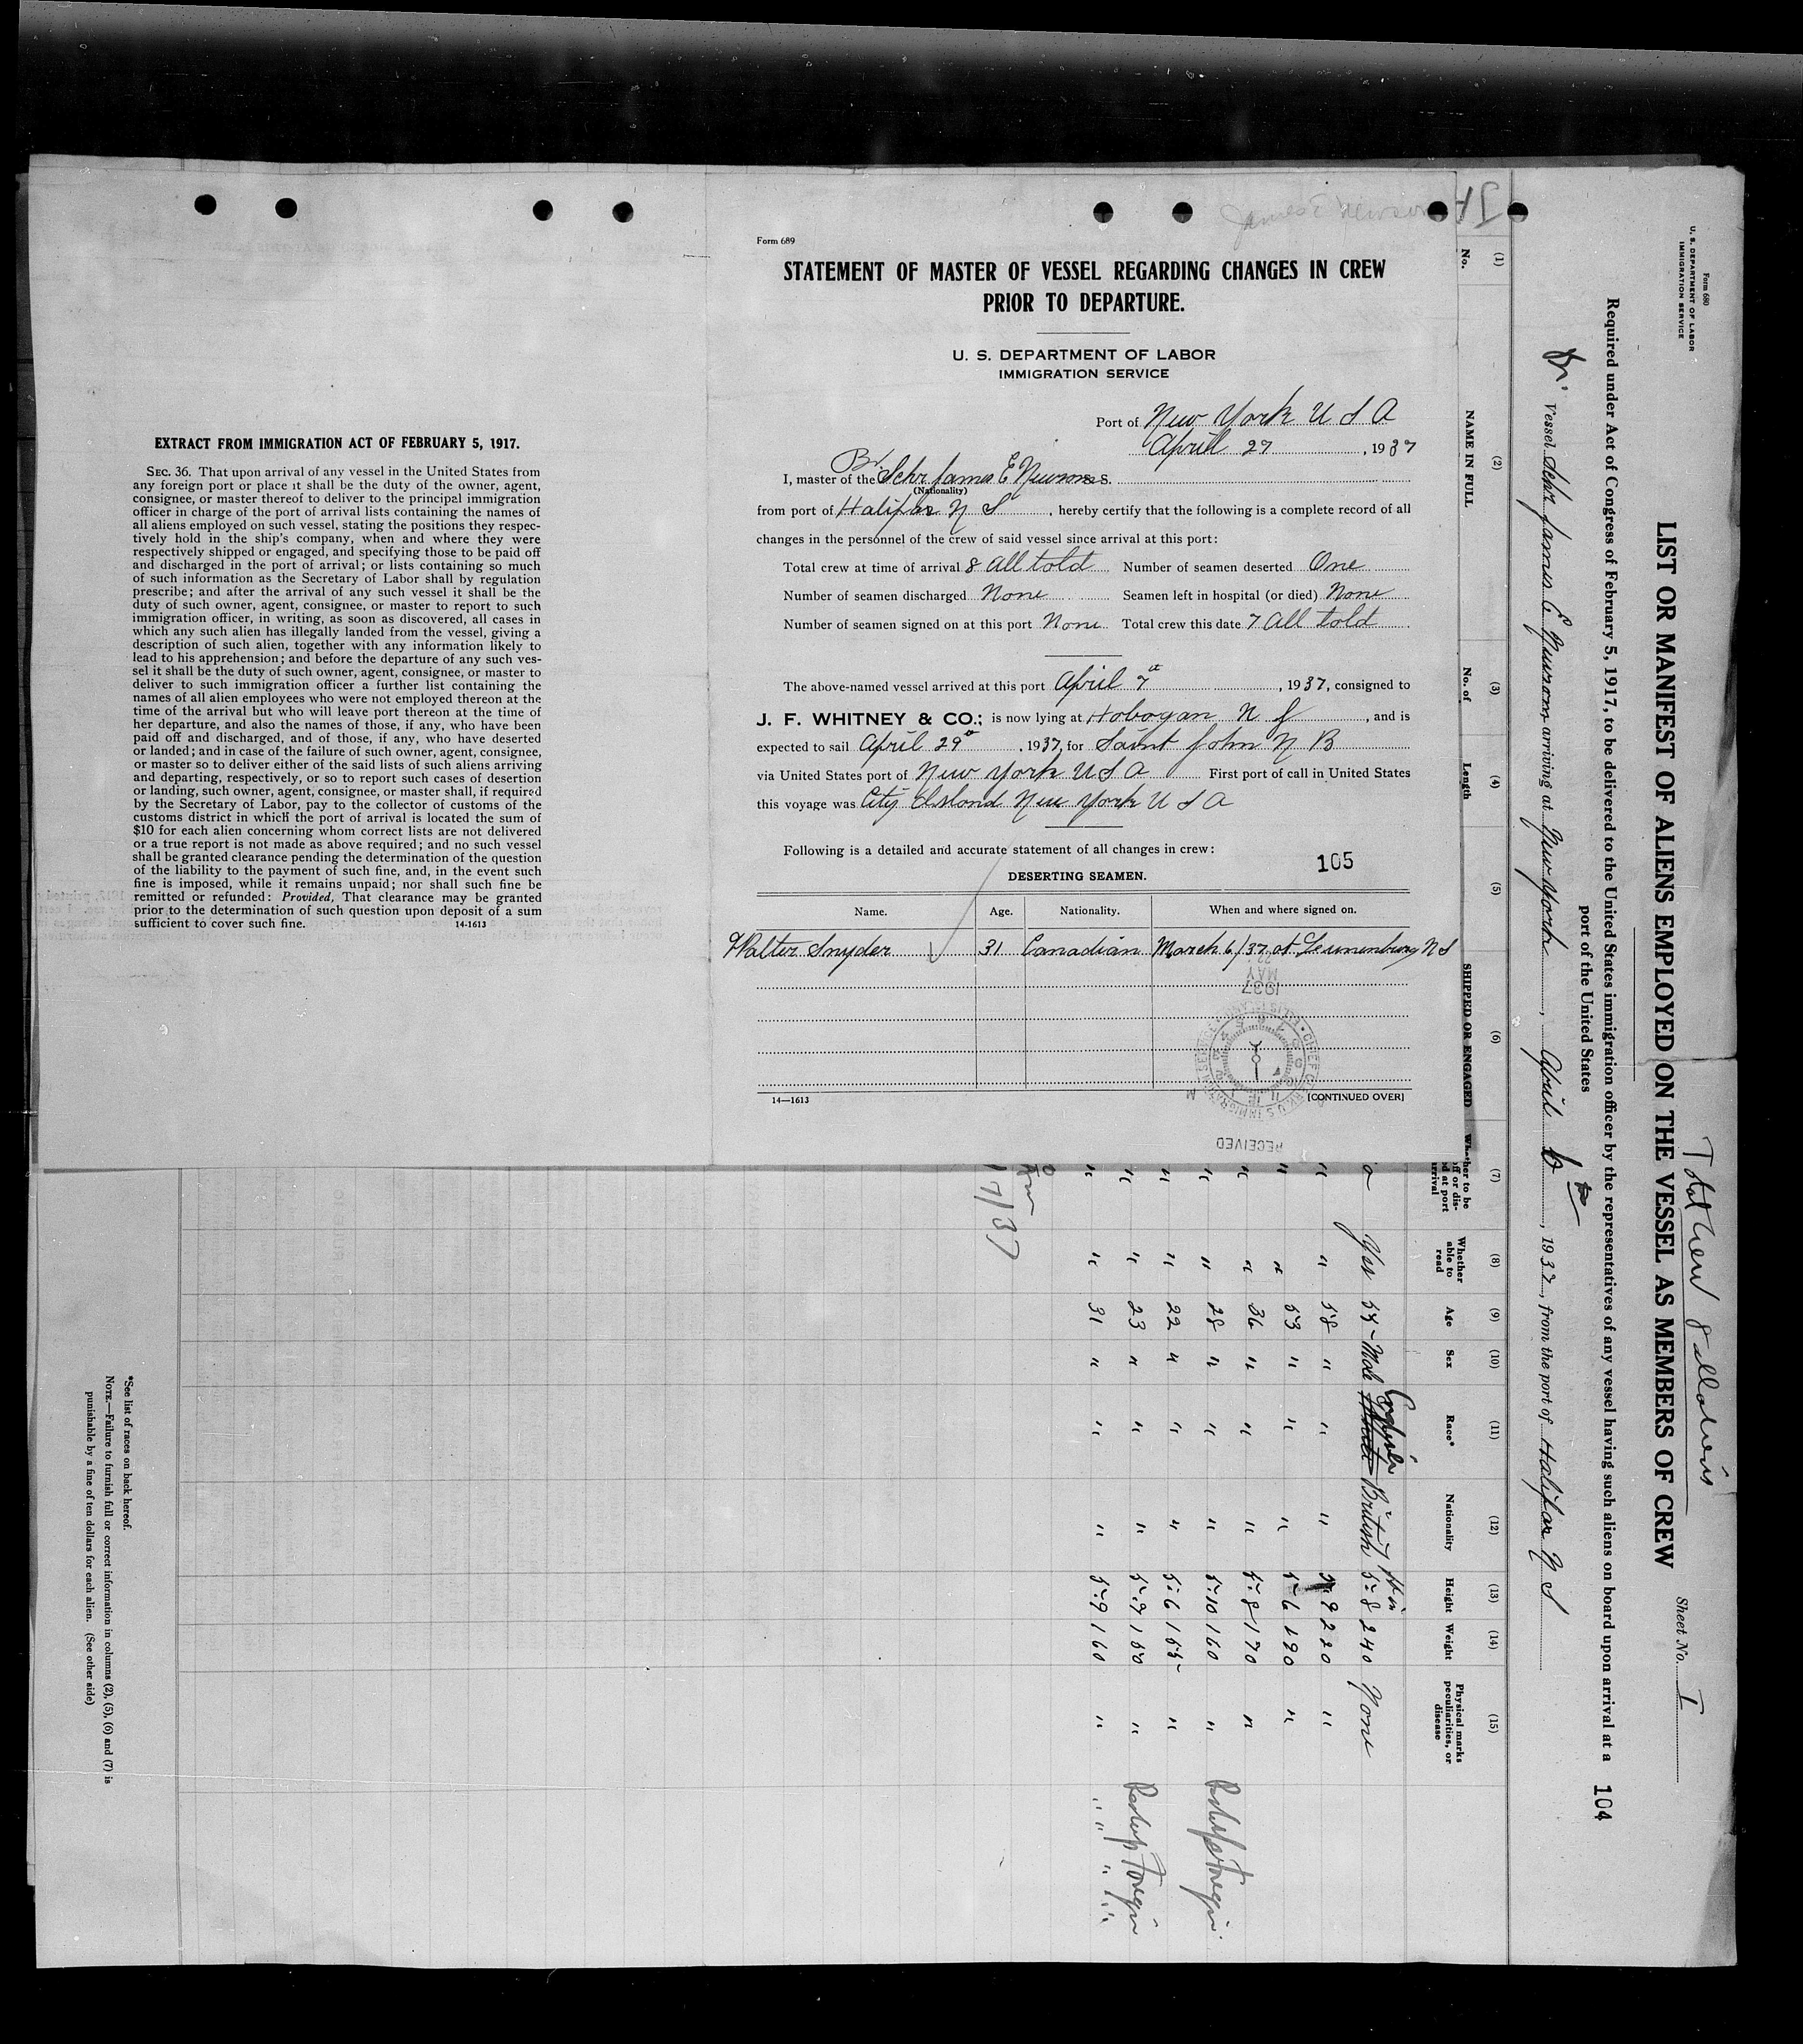 James E Newsom
Form 689
STATEMENT OF MASTER OF VESSEL REGARDING CHANGES IN CREW
PRIOR TO DEPARTURE.
U. S. DEPARTMENT OF LABOR
IMMIGRATION SERVICE
Port of New York U S A
April 27, 1937
Br
I, master of the Schr James E Newsom
(Nationality)
from port of Halifax N S, hereby certify that the following is a complete record of all
changes in the personnel of the crew of said vessel since arrival at this port:
Total crew at time of arrival 8 all told Number of seamen deserted One
Number of seamen discharged None Seamen left in hospital (or died) None
Number of seamen signed on at this port None Total crew this date 7 All told
The above-named vessel arrived at this port April 7, 1937, consigned to
J. F. WHITNEY & CO.; is now lying at Hobogan N J, and is
expected to sail April 29, 1937, for Saint John N B
via United States port of New York U S A First port of call in United States
this voyage was City Island New York U S A
Following is a detailed and accurate statement of all changes in crew:
105
DESERTING SEAMEN.
Name. Age. Nationality. When and where signed on.
Walter Snyder 31 Canadian March 6/37 at Leunenburg N S
1937
MAY
22
RECEIVED
14—1613
[CONTINUED OVER]
EXTRACT FROM IMMIGRATION ACT OF FEBRUARY 5, 1917.
SEC. 36. That upon arrival of any vessel in the United States from
any foreign port or place it shall be the duty of the owner, agent,
consignee, or master thereof to deliver to the principal immigration
officer in charge of the port of arrival lists containing the names of
all aliens employed on such vessel, stating the positions they respec-
tively hold in the ship's company, when and where they were
respectively shipped or engaged, and specifying those to be paid off
and discharged in the port of arrival; or lists containing so much
of such information as the Secretary of Labor shall by regulation
prescribe; and after the arrival of any such vessel it shall be the
duty of such owner, agent, consignee, or master to report to such
immigration officer, in writing, as soon as discovered, all cases in
which any such alien has illegally landed from the vessel, giving a
description of such alien, together with any information likely to
lead to his apprehension; and before the departure of any such ves-
sel it shall be the duty of such owner, agent, consignee, or master to
deliver to such immigration officer a further list containing the
names of all alien employees who were not employed thereon at the
time of the arrival but who will leave port thereon at the time of
her departure, and also the names of those, if any, who have been
paid off and discharged, and of those, if any, who have deserted
or landed; and in case of the failure of such owner, agent, consignee,
or master so to deliver either of the said lists of such aliens arriving
and departing, respectively, or so to report such cases of desertion
or landing, such owner, agent, consignee, or master shall, if required
by the Secretary of Labor, pay to the collector of customs of the
customs district in which the port of arrival is located the sum of
$10 for each alien concerning whom correct lists are not delivered
or a true report is not made as above required; and no such vessel
shall be granted clearance pending the determination of the question
of the liability to the payment of such fine, and, in the event such
fine is imposed, while it remains unpaid; nor shall such fine be
remitted or refunded: Provided, That clearance may be granted
prior to the determination of such question upon deposit of a sum
sufficient to cover such fine.
14-1613
Form 680
U. S. DEPARTMENT OF LABOR
IMMIGRATION SERVICE
Total Crew 8 all told
Sheet No. I
LIST OR MANIFEST OF ALIENS EMPLOYED ON THE VESSEL AS MEMBERS OF CREW
Required under Act of Congress of February 5, 1917, to be delivered to the United States immigration officer by the representatives of any vessel having such aliens on board upon arrival at a
port of the United States
104
Br. Vessel Schr James E Newsom arriving at New York, April 6, 1937, from the port of Halifax N S
(1) (2) (3) (4) (5) (6) (7) (8) (9) (10) (11) (12) (13) (14) (15)
No. NAME IN FULL No. of Length SHIPPED OR ENGAGED Whether to be
off or dis-
at port
arrival
Whether
able to
read
Age Sex Race* Nationality Height Weight Physical marks
peculiarities, or
disease
English ft in
Yes 55 Male British 5-8 240 None
" " 58 " " " 5-9 220 "
" " 53 " " " 5-6 190 "
" " 36 " " " 5-8 170 "
" " 28 " " " 5-10 160 "
" " 22 " " " 5-6 155 "
" " 23 " " " 5-9 150 "
" " 31 " " " 5-9 160 "
7/37
*See list of races on back hereof.
NOTE.—Failure to furnish full or correct information in columns (2), (5), (6) and (7) is
punishable by a fine of ten dollars for each alien. (See other side)